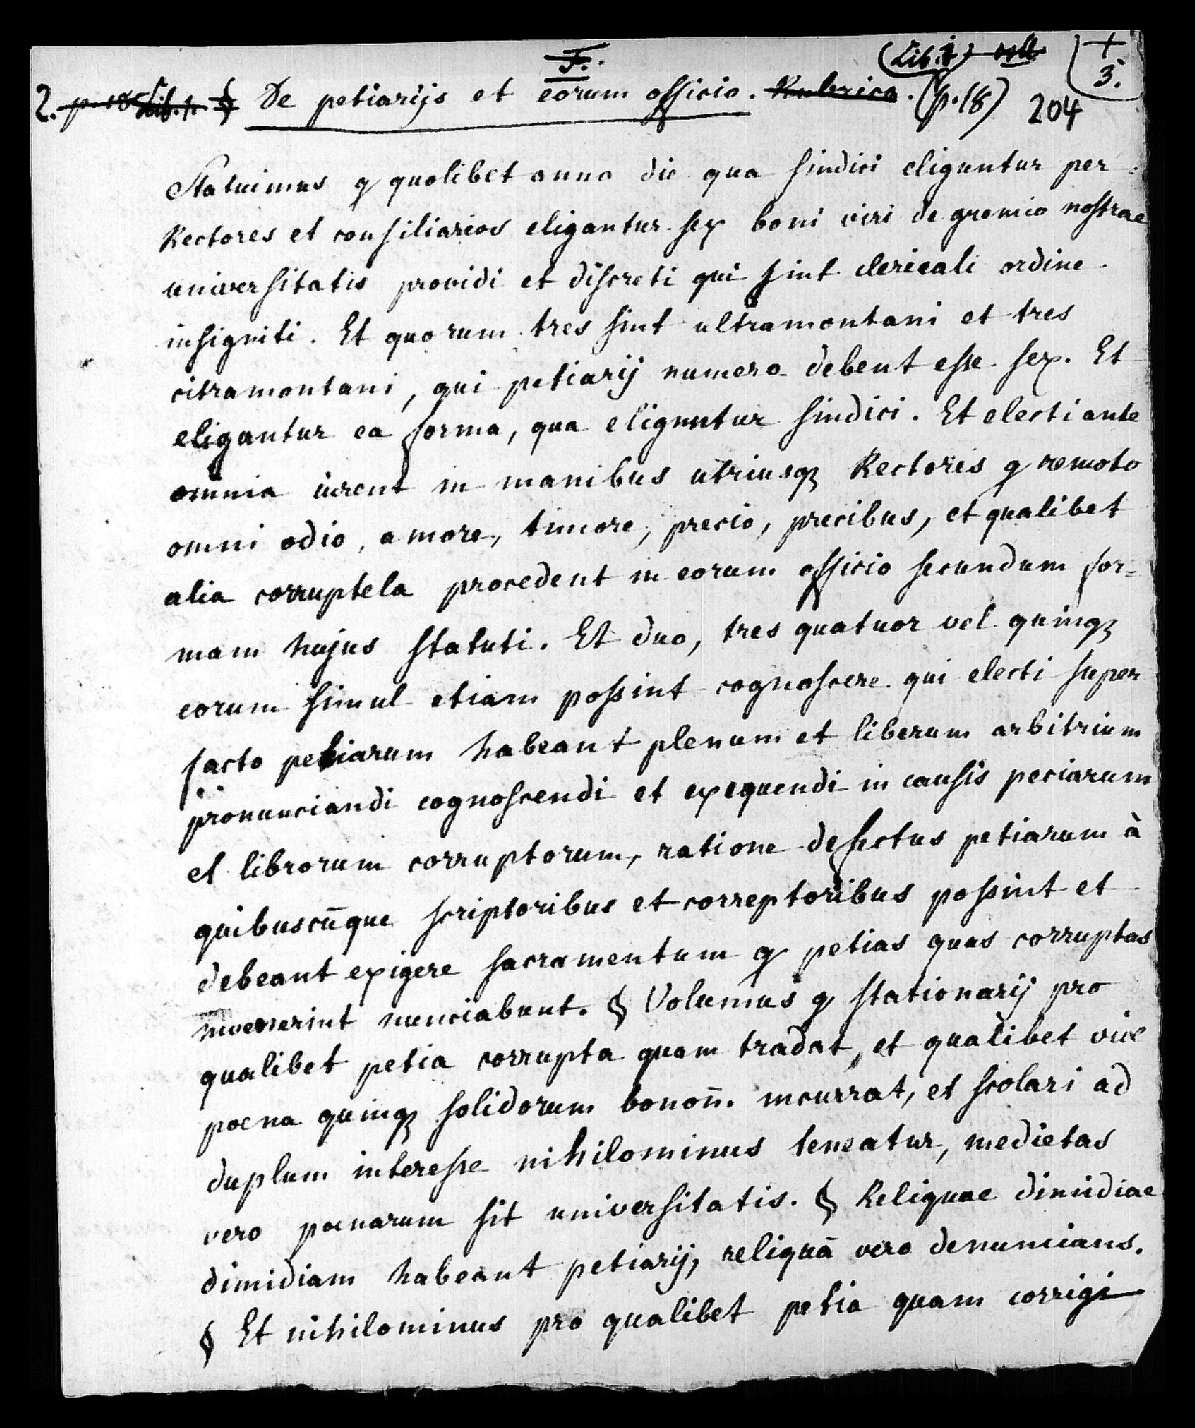 F.
(Lib. 1)
+ 3.
2. p. 18 Lib. 1. § De petiarijs et eorum officio. Rubrica. (p. 18) 204
Statuimus q quolibet anno die qua sindici eliguntur per
Rectores et consiliarios eligantur sex boni viri de gremio nostrae
universitatis providi et discreti qui sint clericali ordine
insigniti. Et quorum tres sint ultramontani et tres
citramontani, qui petiarij numero debent esse sex. Et
eligantur ea forma, qua eliguntur sindici. Et electi ante
omnia iurent in manibus utriusq Rectoris q remoto
omni odio, amore, timore, precio, precibus, et qualibet
alia corruptela procedent in eorum officio secundum for=
mam hujus statuti. Et duo, tres quatuor vel quinq
eorum simul etiam possint cognoscere qui electi super
facto petiarum habeant plenum et liberum arbitrium
pronunciandi cognoscendi et exequendi in causis peciarum
et librorum corruptorum, ratione defectus petiarum à
quibuscūque scriptoribus et correptoribus possint et
debeant exigere sacramentum q petias quas corruptas
invenerint nunciabunt. § Volumus q stationarij pro
qualibet petia corrupta quam tradat, et qualibet vice
poena quinq solidorum bonoñ. incurrat, et scolari ad
duplum interesse nihilominus teneatur, medietas
vero poenarum sit universitatis. § Reliquae dimidiae
dimidiam habeant petiarij, reliquā vero denuncians.
§ Et nihilominus pro qualibet petia quam corrigi